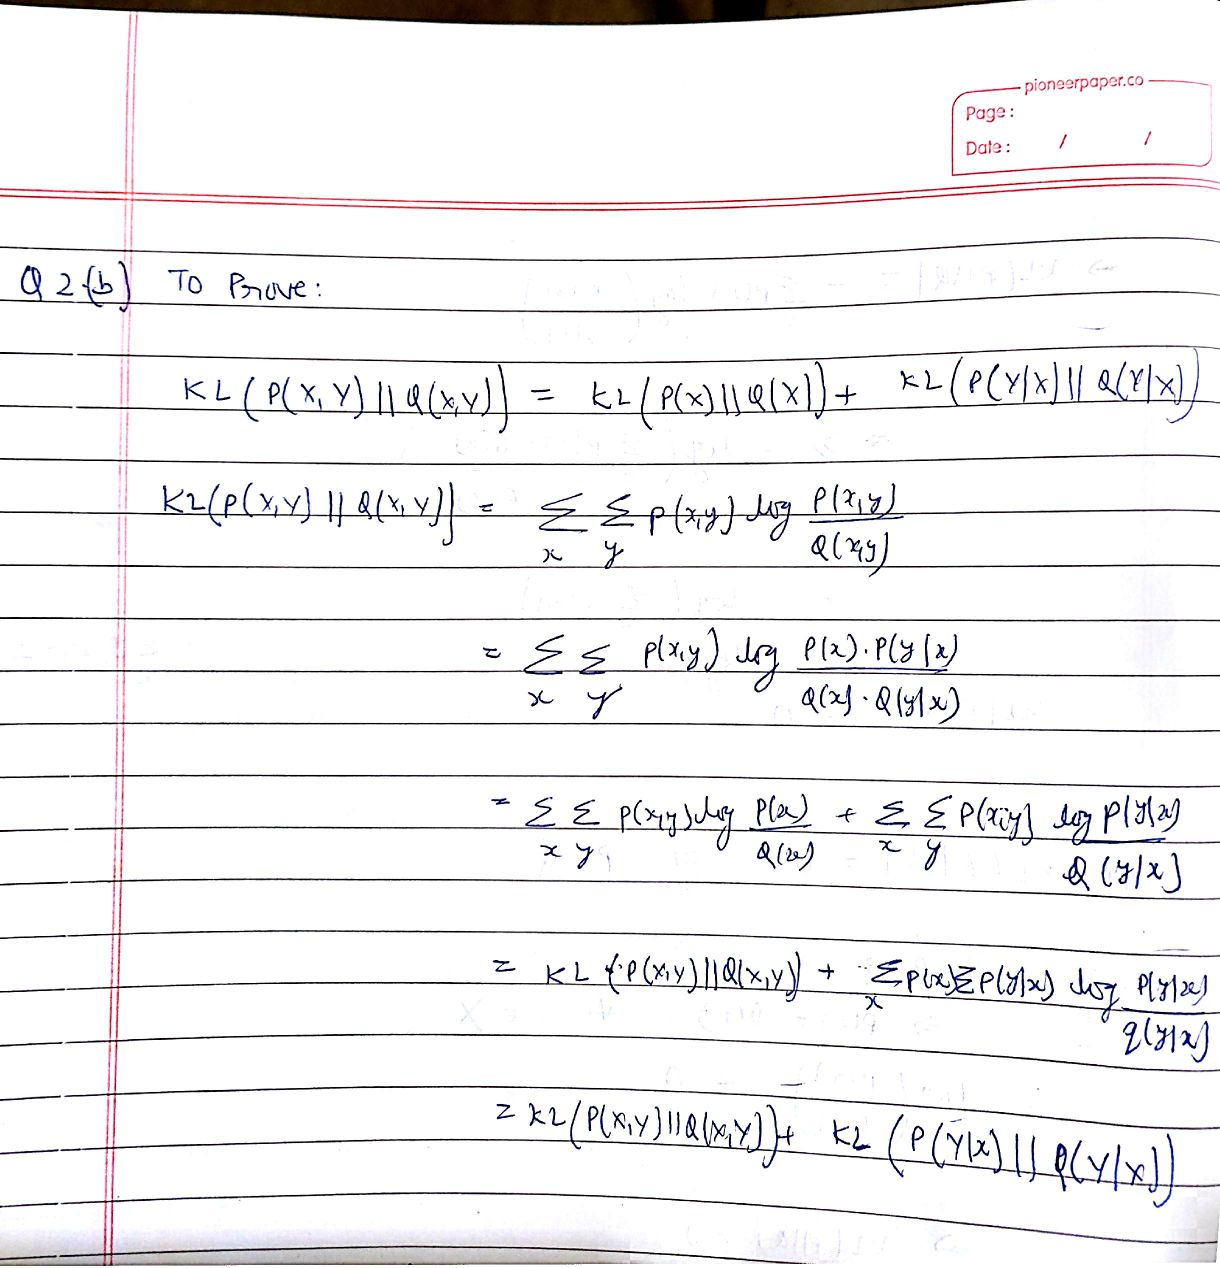 pioneerpaper.co
Page :
Date : / /
Q 2 (b) To Prove :
KL ( P(X, Y) || Q(X,Y) ) = KL ( P(X) || Q(X) ) + KL ( P(Y|X) || Q(Y|X) )
KL ( P(X,Y) || Q(X,Y) ) = Σ_x Σ_y P(x,y) log P(x,y) / Q(x,y)
= Σ_x Σ_y P(x,y) log P(x) . P(y|x) / Q(x) . Q(y|x)
= Σ_x Σ_y P(x,y) log P(x) / Q(x) + Σ_x Σ_y P(x,y) log P(y|x) / Q(y|x)
= KL ( P(X,Y) || Q(X,Y) ) + Σ_x P(x) Σ P(y|x) log P(y|x) / q(y|x)
= KL ( P(X,Y) || Q(X,Y) ) + KL ( P(Y|X) || Q(Y|X) )